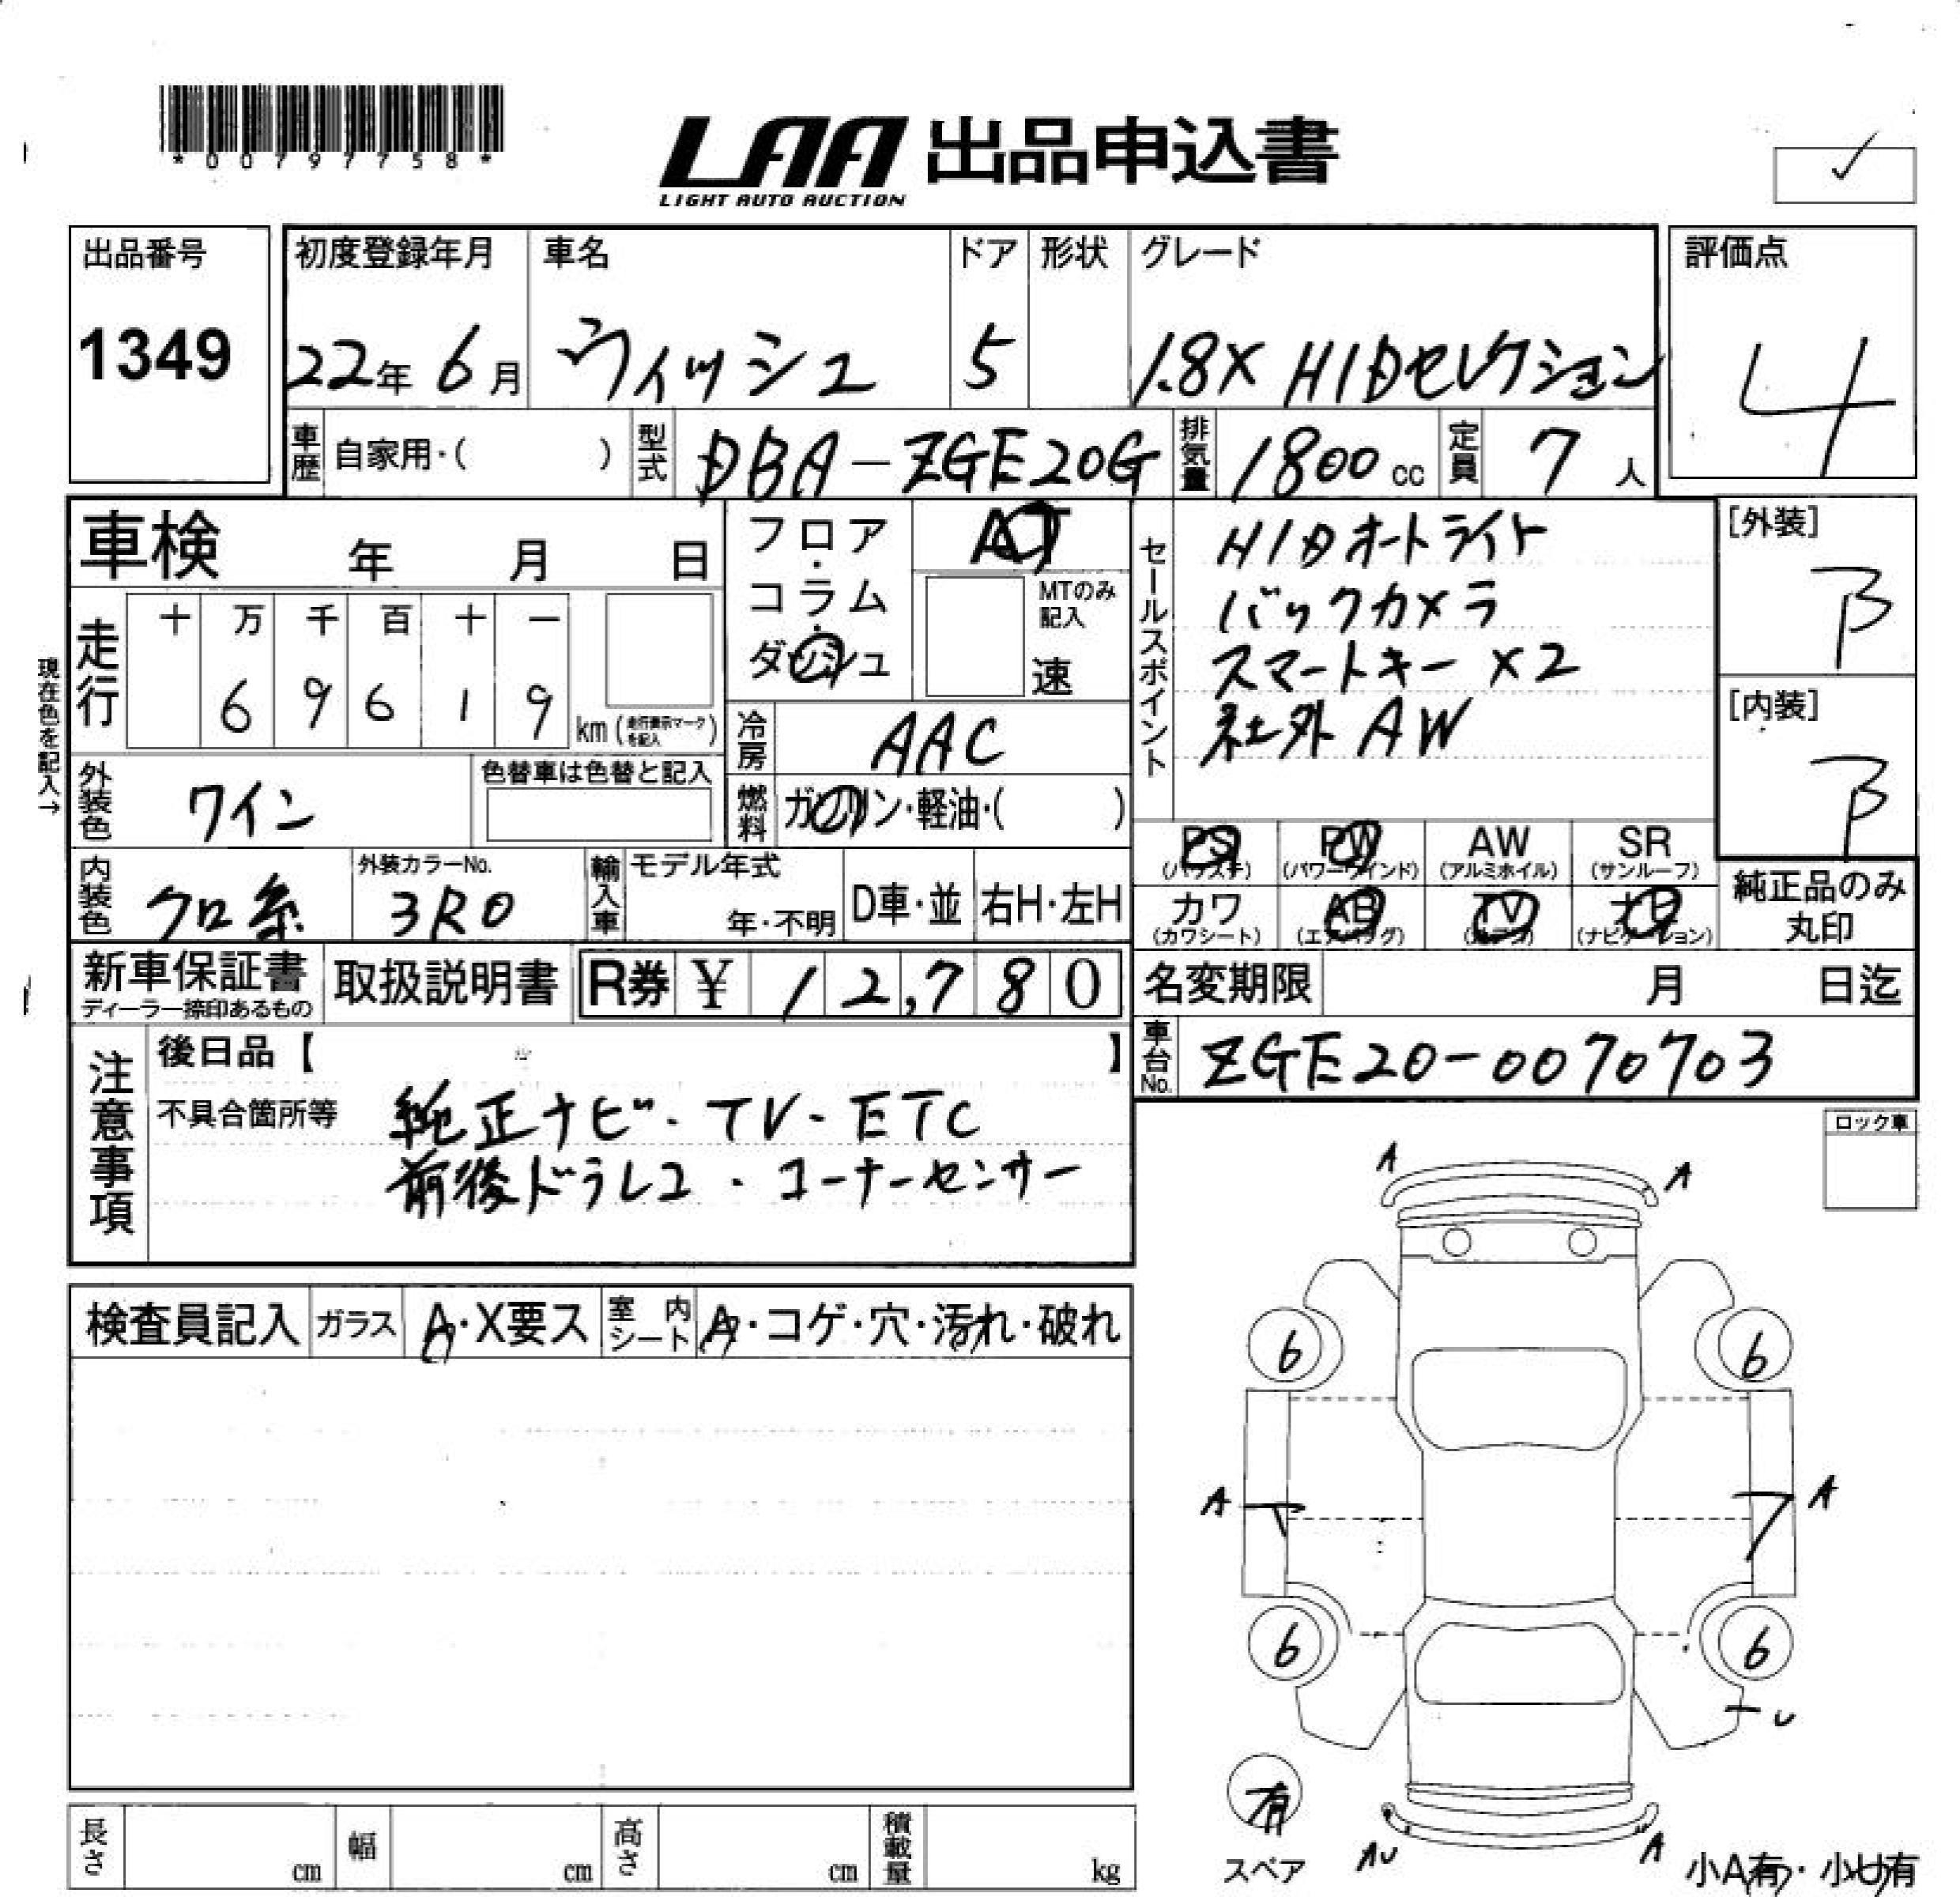 *00797758*
LAA 出品申込書
LIGHT AUTO AUCTION
✓
出品番号
1349
初度登録年月
22年 6月
車名
ウィッシュ
ドア
5
形状
グレード
1.8X HIDセレクション
評価点
4
車歴 自家用・( )
型式 DBA-ZGE20G
排気量 1800 cc
定員 7 人
車検 年 月 日
フロア・コラム・ダッシュ
AT
MTのみ記入
速
セールスポイント
HIDオートライト
バックカメラ
スマートキー×2
社外AW
[外装]
B
[内装]
B
現在色を記入→
走行
十 万 千 百 十 一
6 9 6 1 9
km (走行表示マークを記入)
冷房 AAC
燃料 ガソリン・軽油・( )
外装色 ワイン
色替車は色替と記入
内装色 クロ系
外装カラーNo.
3R0
輸入車
モデル年式
年・不明
D車・並
右H・左H
PS (パワステ)
PW (パワーウインド)
AW (アルミホイル)
SR (サンルーフ)
カワ (カワシート)
AB (エアバッグ)
TV
ナビ (ナビゲーション)
純正品のみ
丸印
新車保証書
ディーラー捺印あるもの
取扱説明書
R券 ¥ 12,780
名変期限 月 日迄
車台No. ZGE20-0070703
注意事項
後日品【 】
不具合箇所等
純正ナビ・TV・ETC
前後ドラレコ・コーナーセンサー
ロック車
検査員記入
ガラス A・X要ス
室内シート A・コゲ・穴・汚れ・破れ
A A
6 6
A A
6 6
U
有
スペア
AU A
小A有・小U有
長さ cm
幅 cm
高さ cm
積載量 kg